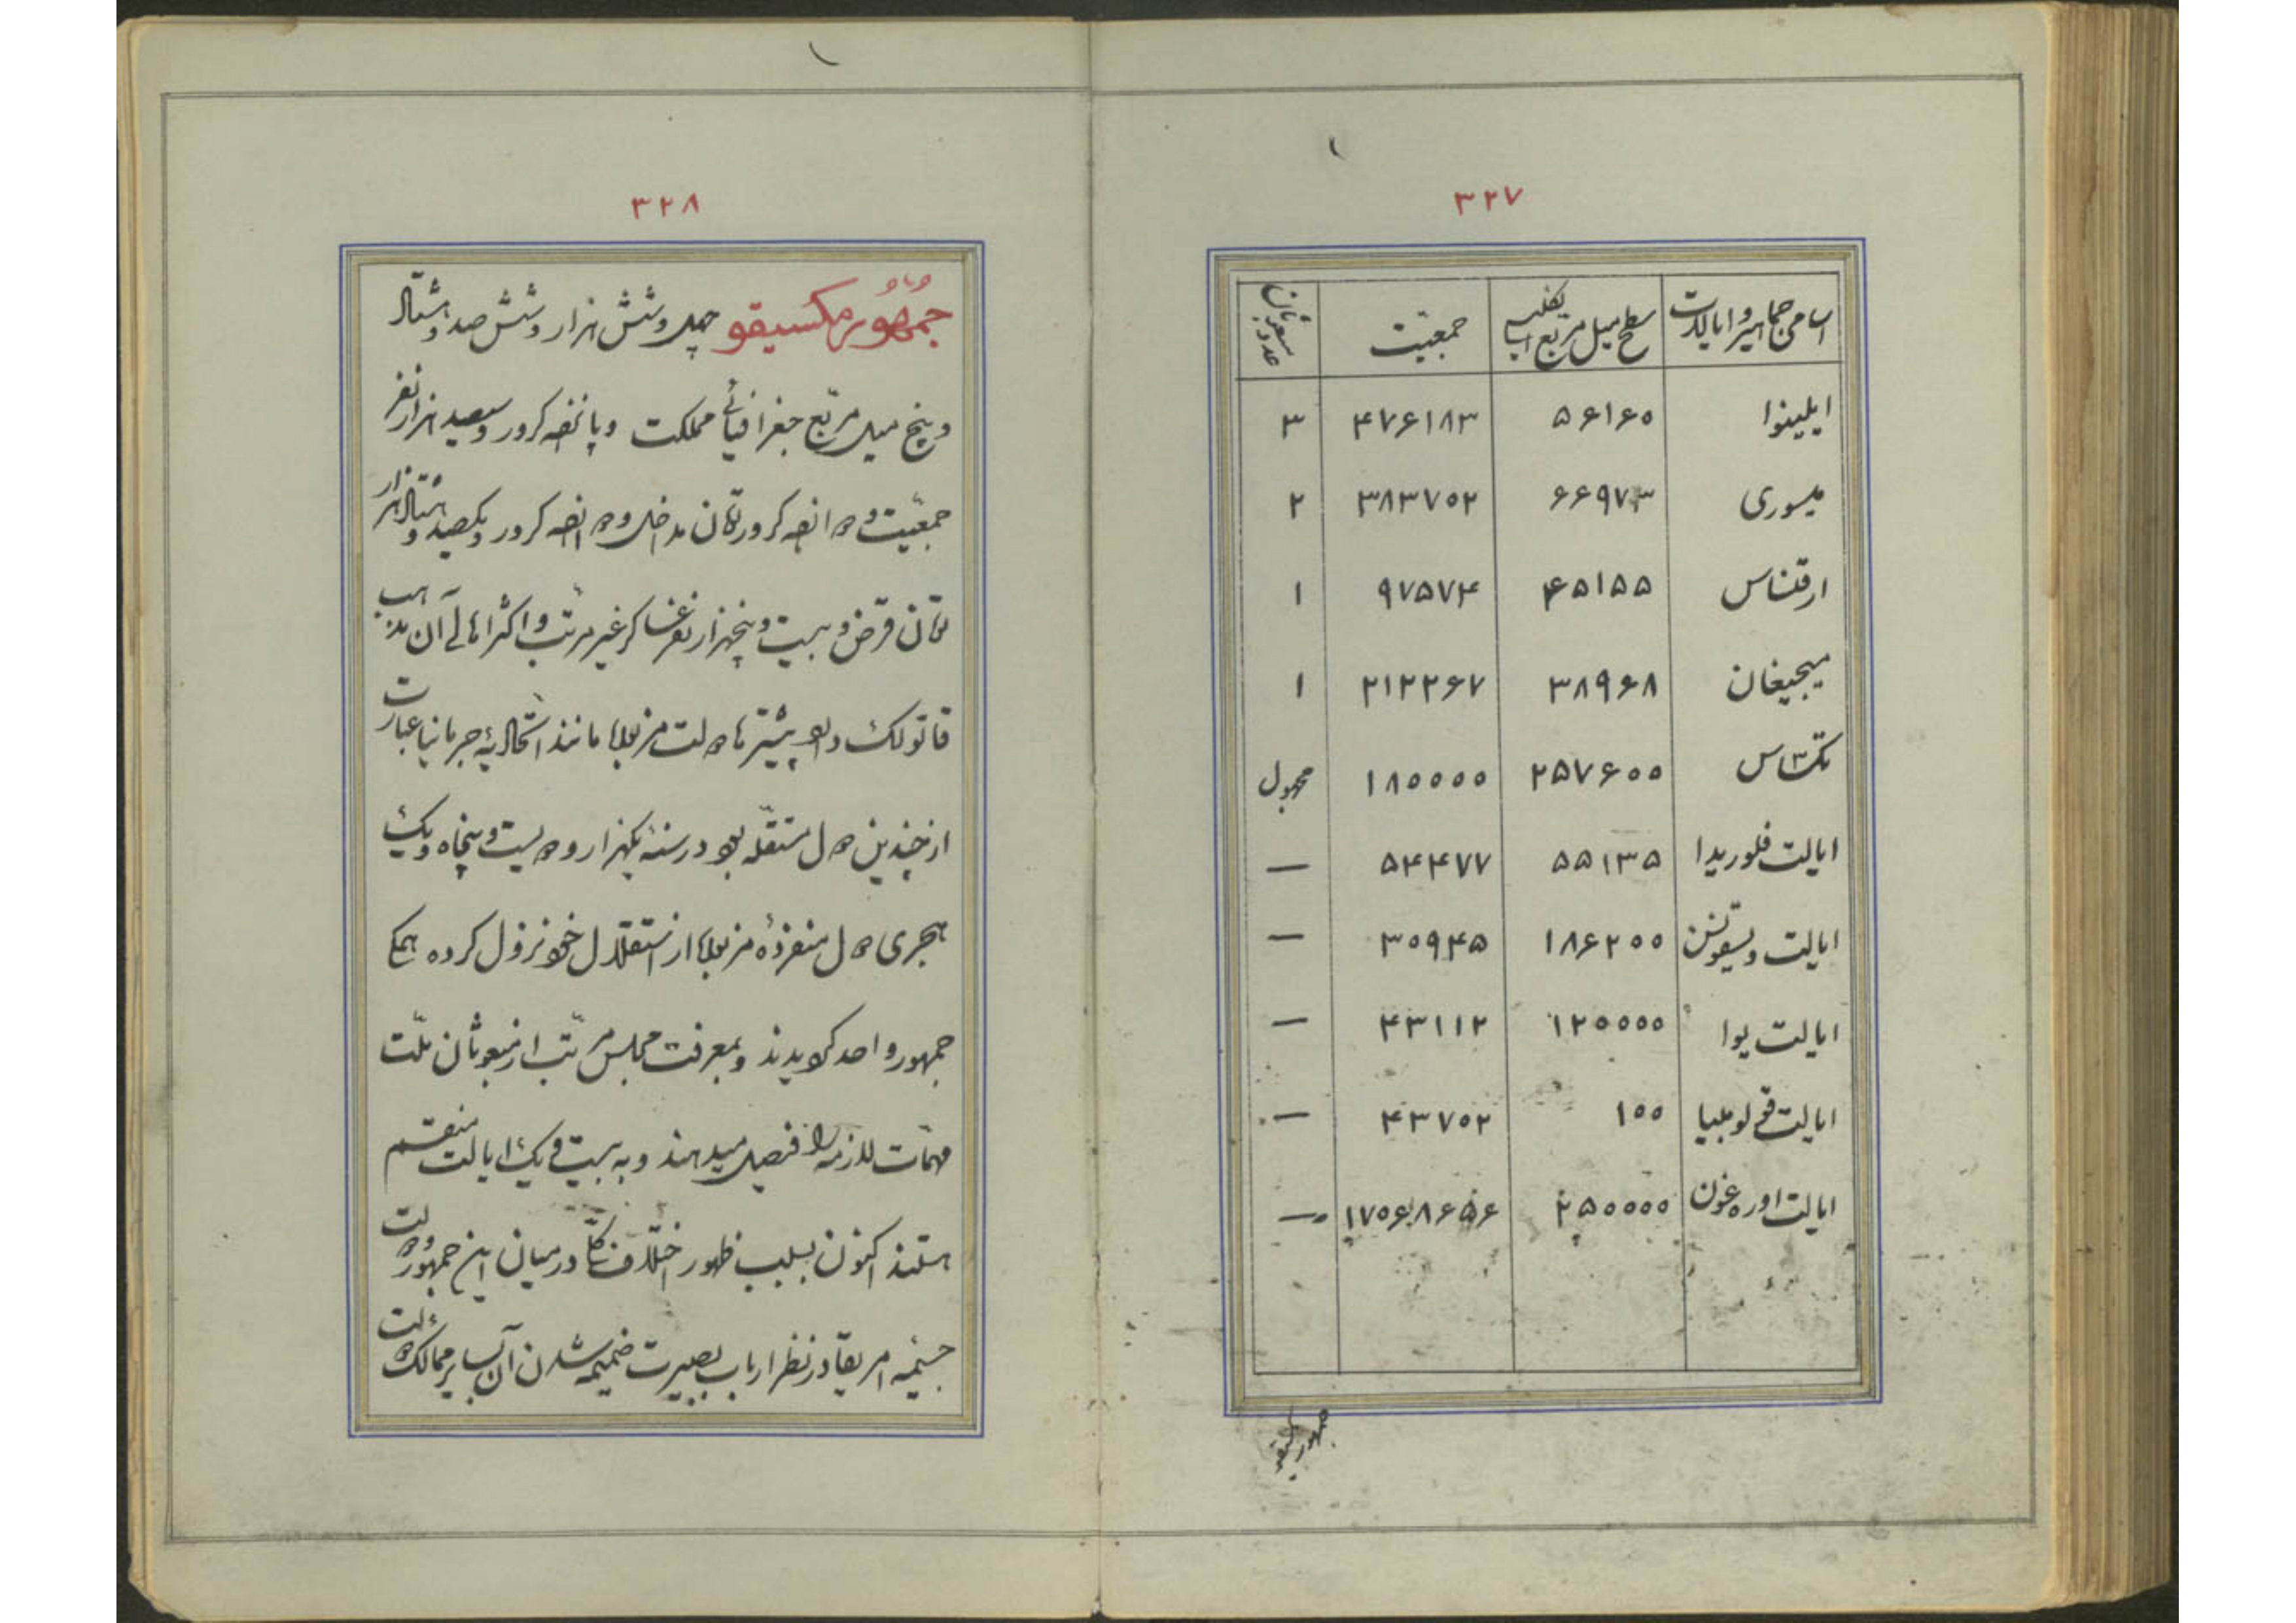 ۳۲۷
اسامی جماهیر و ایالات سطح میل مربع جمعیت عدد مبعوثان
ایلینوا ۵۶۱۶۰ ۴۷۶۱۸۳ ۳
میسوری ۶۶۹۷۳ ۳۸۳۷۰۲ ۲
ارقنساس ۴۵۱۵۵ ۹۷۵۷۴ ۱
میجیغان ۳۸۹۶۸ ۲۱۲۲۶۷ ۱
تکساس ۲۵۷۶۰۰ ۱۸۰۰۰۰ مجهول
ایالت فلوریدا ۵۵۱۳۵ ۵۴۴۷۷ —
ایالت ویسقونسن ۱۸۶۲۰۰ ۳۰۹۴۵ —
ایالت یوا ۱۲۰۰۰۰ ۴۳۱۱۲ —
ایالت قولومبیا ۱۰۰ ۴۳۷۰۲ —
ایالت اوره‌غون ۲۵۰۰۰۰ ۱۷۰۶۸۶۵۶ —
جمهور مکسیقو
۳۲۸
جمهور مکسیقو چهل و شش هزار و شش صد و هشتاد
و پنج میل مربع جغرافیائی مملکت و پانزده کرور و سیصد هزار نفر
جمعیت و دوازده کرور تومان مداخل و دوازده کرور و یکصد و هشتاد هزار
تومان قرض و بیست و پنجهزار نفر عساکر غیر مرتب و اکثر اهالی آن بمذهب
قاتولک و پیشتر ها دولت مزبور مانند اتحادیه جرمانیا عبارت
از چندین دول مستقله بود در سنه یکهزار و دویست و پنجاه و یک
هجری دول منفرده مزبور از استقلال خود نزول کرده همگی
جمهور واحد گردیدند و بمعرفت مجلس مرتب از مبعوثان ملت
مهمات لازمه را فیصل میدهند و به بیست و یک ایالت منقسم
هستند اکنون بسبب ظهور اختلاف کلی در میان این جمهور و دولت
جسیمه امریقا در نظر ارباب بصیرت ضمیمه شدن آن بسایر ممالک دولت